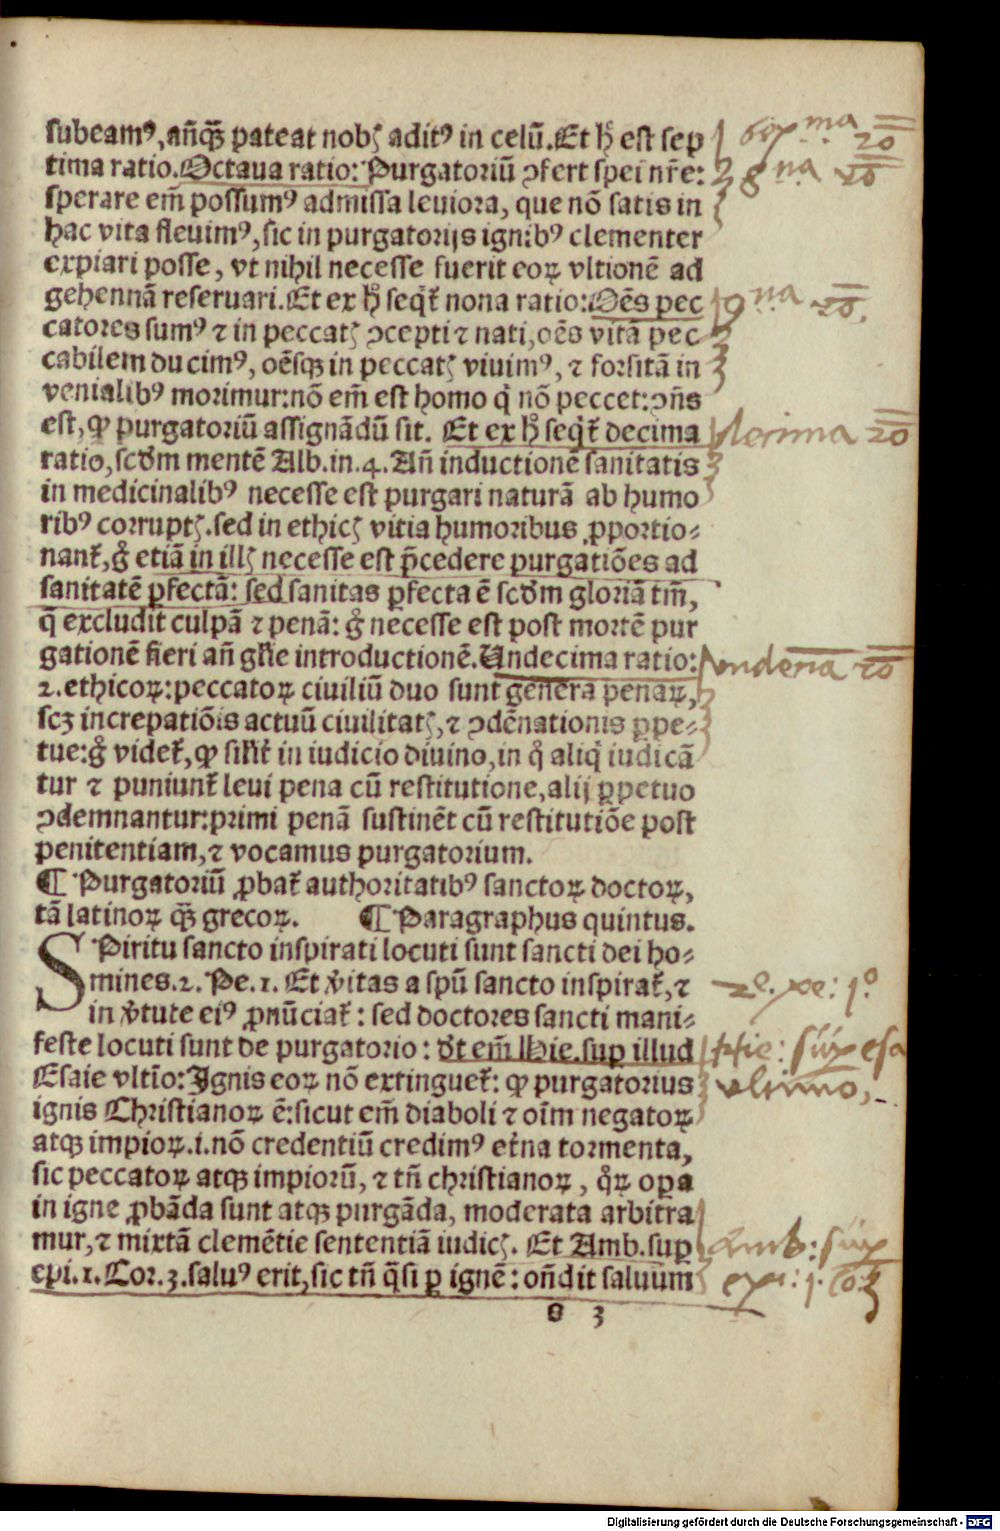 subeamꝰ, añqꝫ pateat nobꝭ aditꝰ in celū. Et hͦ est sep
tima ratio. Octaua ratio: Purgatoriū ↄfert spei nr̄e:
sperare em̄ possumꝰ admissa leuiora, que nō satis in
hac vita fleuimꝰ, sic in purgatorijs ignibꝰ clementer
expiari posse, vt nihil necesse fuerit eoꝝ vltionē ad
gehennā reseruari. Et ex hͦ seqͥt̄ nona ratio: Oēs pec
catores sumꝰ ⁊ in peccatꝭ ↄcepti ⁊ nati, oēs vitā pec
cabilem ducimꝰ, oēsqꝫ in peccatꝭ viuimꝰ, ⁊ forsitā in
venialibꝰ morimur: nō em̄ est homo qͥ nō peccet: ↄn̄s
est, ꝙ purgatoriū assignādū sit. Et ex hͦ seqͥt̄ decima
ratio, scd̓m mentē Alb. in. 4. Añ inductionē sanitatis
in medicinalibꝰ necesse est purgari naturā ab humo
ribꝰ corruptꝭ. sed in ethicꝭ vitia humoribus ꝓportio-
nant̄, gͦ etiā in illꝭ necesse est p̄cedere purgatiōes ad
sanitatē ꝑfectā: sed sanitas ꝑfecta ē scd̓m gloriā tm̄,
q̄ excludit culpā ⁊ penā: gͦ necesse est post mortē pur
gationē fieri añ gl̄ie introductionē. Undecima ratio:
2. ethicoꝝ: peccatoꝝ ciuiliū duo sunt genera penaꝝ,
scꝫ increpatiōis actuū ciuilitatꝭ, ⁊ ↄdēnationis ꝑpe-
tue: gͦ videt̄, ꝙ sil̄it̄ in iudicio diuino, in qͦ aliqͥ iudicā
tur ⁊ puniunt̄ leui pena cū restitutione, alij ꝑpetuo
ↄdemnantur: primi penā sustinēt cū restitutiōe post
penitentiam, ⁊ vocamus purgatorium.
¶ Purgatoriū ꝓbat̄ authoritatibꝰ sanctoꝝ doctoꝝ,
tā latinoꝝ qꝫ grecoꝝ. ¶ Paragraphus quintus.
SPiritu sancto inspirati locuti sunt sancti dei ho-
mines. 2. Pe. 1. Et v̓itas a spū sancto inspirat̄, ⁊
in v̓tute eiꝰ ꝓnūciat̄: sed doctores sancti mani-
feste locuti sunt de purgatorio: vt em̄ Hie. suꝑ illud
Esaie vltīo: Ignis eoꝝ nō extinguet̄: ꝙ purgatorius
ignis Christianoꝝ ē: sicut em̄ diaboli ⁊ oīm negatoꝝ
atqꝫ impioꝝ .i. nō credentiū credimꝰ et̓na tormenta,
sic peccatoꝝ atqꝫ impiorū, ⁊ tn̄ christianoꝝ, qͦꝝ oꝑa
in igne ꝓbāda sunt atqꝫ purgāda, moderata arbitra
mur, ⁊ mixtā clemētie sententiā iudicꝭ. Et Amb. suꝑ
epi. 1. Cor. 3. saluꝰ erit, sic tn̄ qͣsi ꝑ ignē: on̄dit saluum
o 3
ma 20
8 na 20
9 na 20.
decima 20
undena 20
2e. pe: 1o
Hie: sup esa
vltimo,
Amb: sup
epi: 1. co: 3
Digitalisierung gefördert durch die Deutsche Forschungsgemeinschaft - DFG